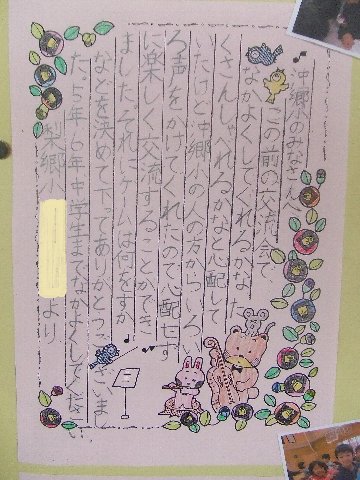 沖郷小のみなさんへ
この前の交流会で
なかよくしてくれるかな、た
くさんしゃべれるかなと心配して
いたけど沖郷小の人の方からいろい
ろ声をかけてくれたので心配せず
に楽しく交流することができ
ました。それにゲームは何をするか
などを決めて下ってありがとうございまし
た。5年6年中学生までなかよくしてください。
梨郷小 より